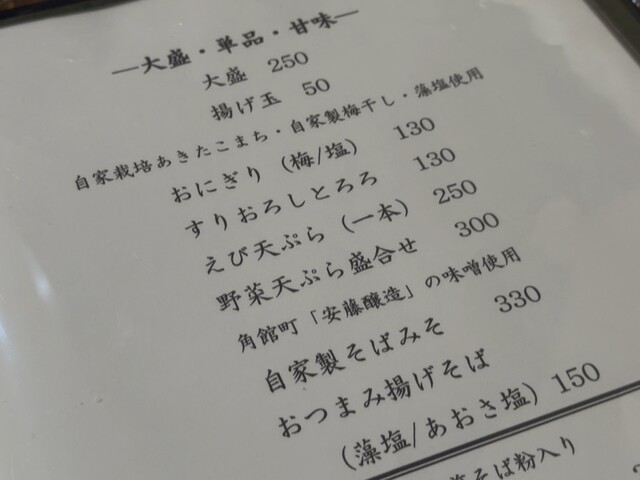 ―大盛・単品・甘味―
大盛 250
揚げ玉 50
自家栽培あきたこまち・自家製梅干し・藻塩使用
おにぎり（梅/塩） 130
すりおろしとろろ 130
えび天ぷら（一本） 250
野菜天ぷら盛合せ 300
角館町「安藤醸造」の味噌使用
自家製そばみそ 330
おつまみ揚げそば
（藻塩/あおさ塩）150
そば粉入り